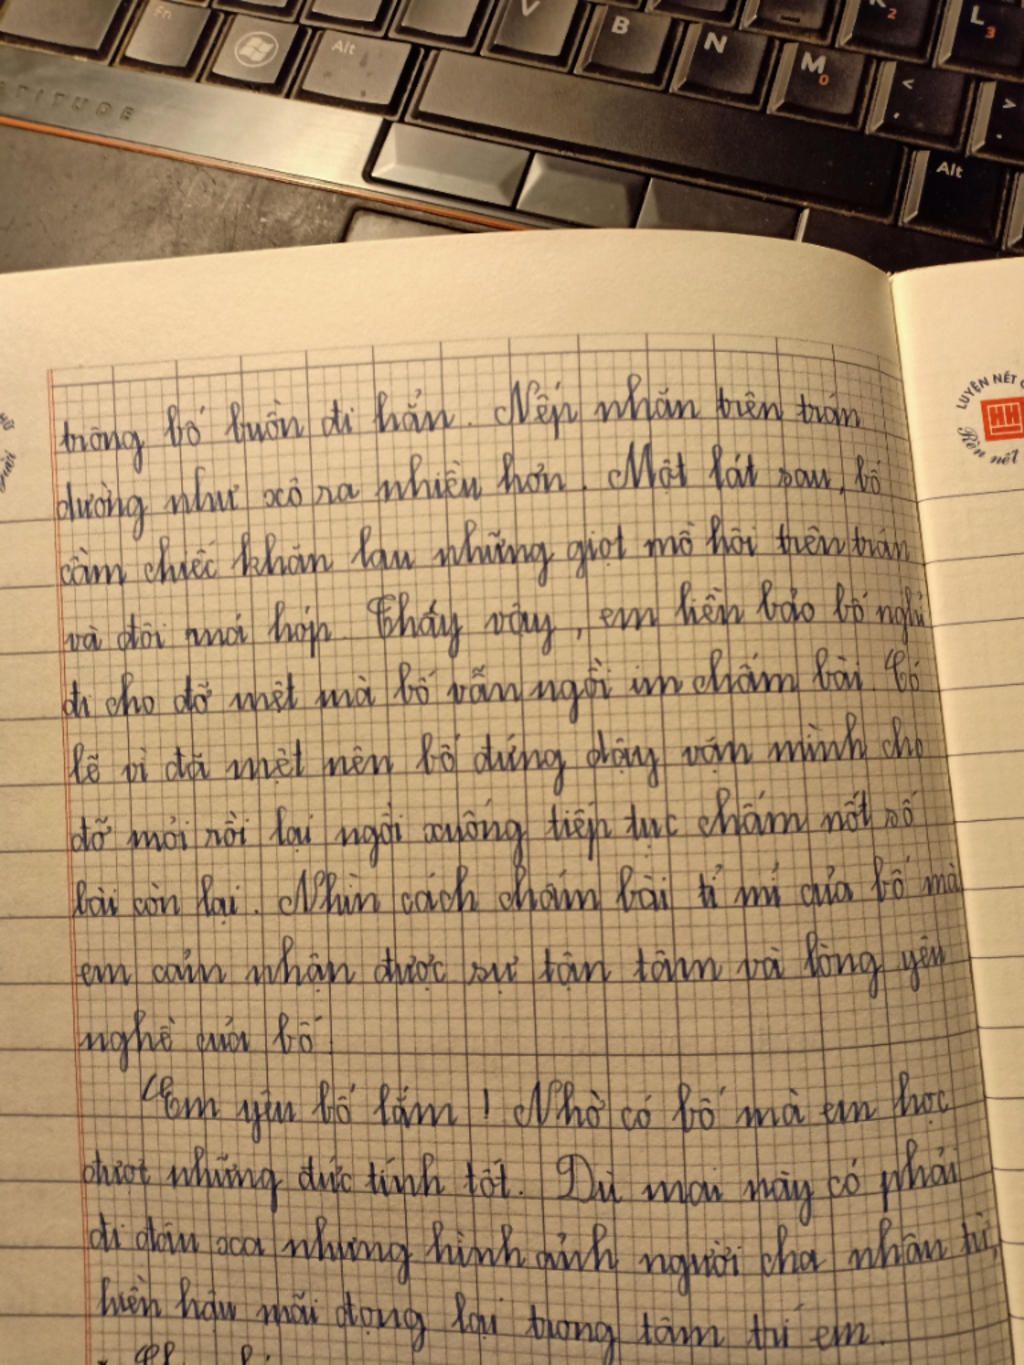 Fn
Alt
V
B
N
M
0
K
2
L
3
<
,
>
.
Alt
LATITUDE
LUYỆN NÉT
HH
Rèn nết
trông bố buồn đi hẳn. Nếp nhăn trên trán
dường như xô ra nhiều hơn. Một lát sau, bố
cầm chiếc khăn lau những giọt mồ hôi trên trán
và đôi má hóp. Thấy vậy, em liền bảo bố nghỉ
đi cho đỡ mệt mà bố vẫn ngồi im chấm bài. Có
lẽ vì đã mệt nên bố đứng dậy vặn mình cho
đỡ mỏi rồi lại ngồi xuống tiếp tục chấm nốt số
bài còn lại. Nhìn cách chấm bài tỉ mỉ của bố mà
em cảm nhận được sự tận tâm và lòng yêu
nghề của bố.
Em yêu bố lắm! Nhờ có bố mà em học
được những đức tính tốt. Dù mai này có phải
đi đâu xa nhưng hình ảnh người cha nhân từ,
hiền hậu mãi đọng lại trong tâm trí em.